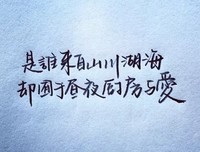 是誰来自山川湖海
却困于昼夜厨房与愛